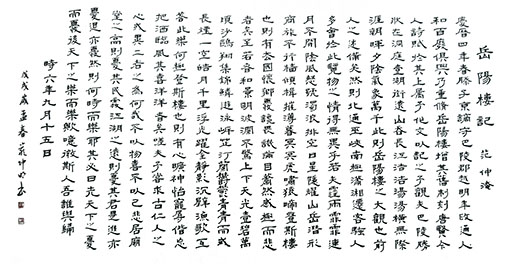 岳陽樓記 范仲淹
慶曆四年春滕子京謫守巴陵郡越明年政通人
和百廢俱興乃重修岳陽樓增其舊制刻唐賢今
人詩賦於其上屬予作文以記之予觀夫巴陵勝
狀在洞庭一湖銜遠山吞長江浩浩湯湯橫無際
涯朝暉夕陰氣象萬千此則岳陽樓之大觀也前
人之述備矣然則北通巫峽南極瀟湘遷客騷人
多會於此覽物之情得無異乎若夫霪雨霏霏連
月不開陰風怒號濁浪排空日星隱耀山岳潛形
商旅不行檣傾楫摧薄暮冥冥虎嘯猿啼登斯樓
也則有去國懷鄉憂讒畏譏滿目蕭然感極而悲
者矣至若春和景明波瀾不驚上下天光一碧萬
頃沙鷗翔集錦鱗游泳岸芷汀蘭鬱鬱青青而或
長煙一空皓月千里浮光躍金靜影沉璧漁歌互
答此樂何極登斯樓也則有心曠神怡寵辱偕忘
把酒臨風其喜洋洋者矣嗟夫予嘗求古仁人之
心或異二者之為何哉不以物喜不以己悲居廟
堂之高則憂其民處江湖之遠則憂其君是進亦
憂退亦憂然則何時而樂耶其必曰先天下之憂
而憂後天下之樂而樂歟噫微斯人吾誰與歸
時六年九月十五日
戊戌歲孟春